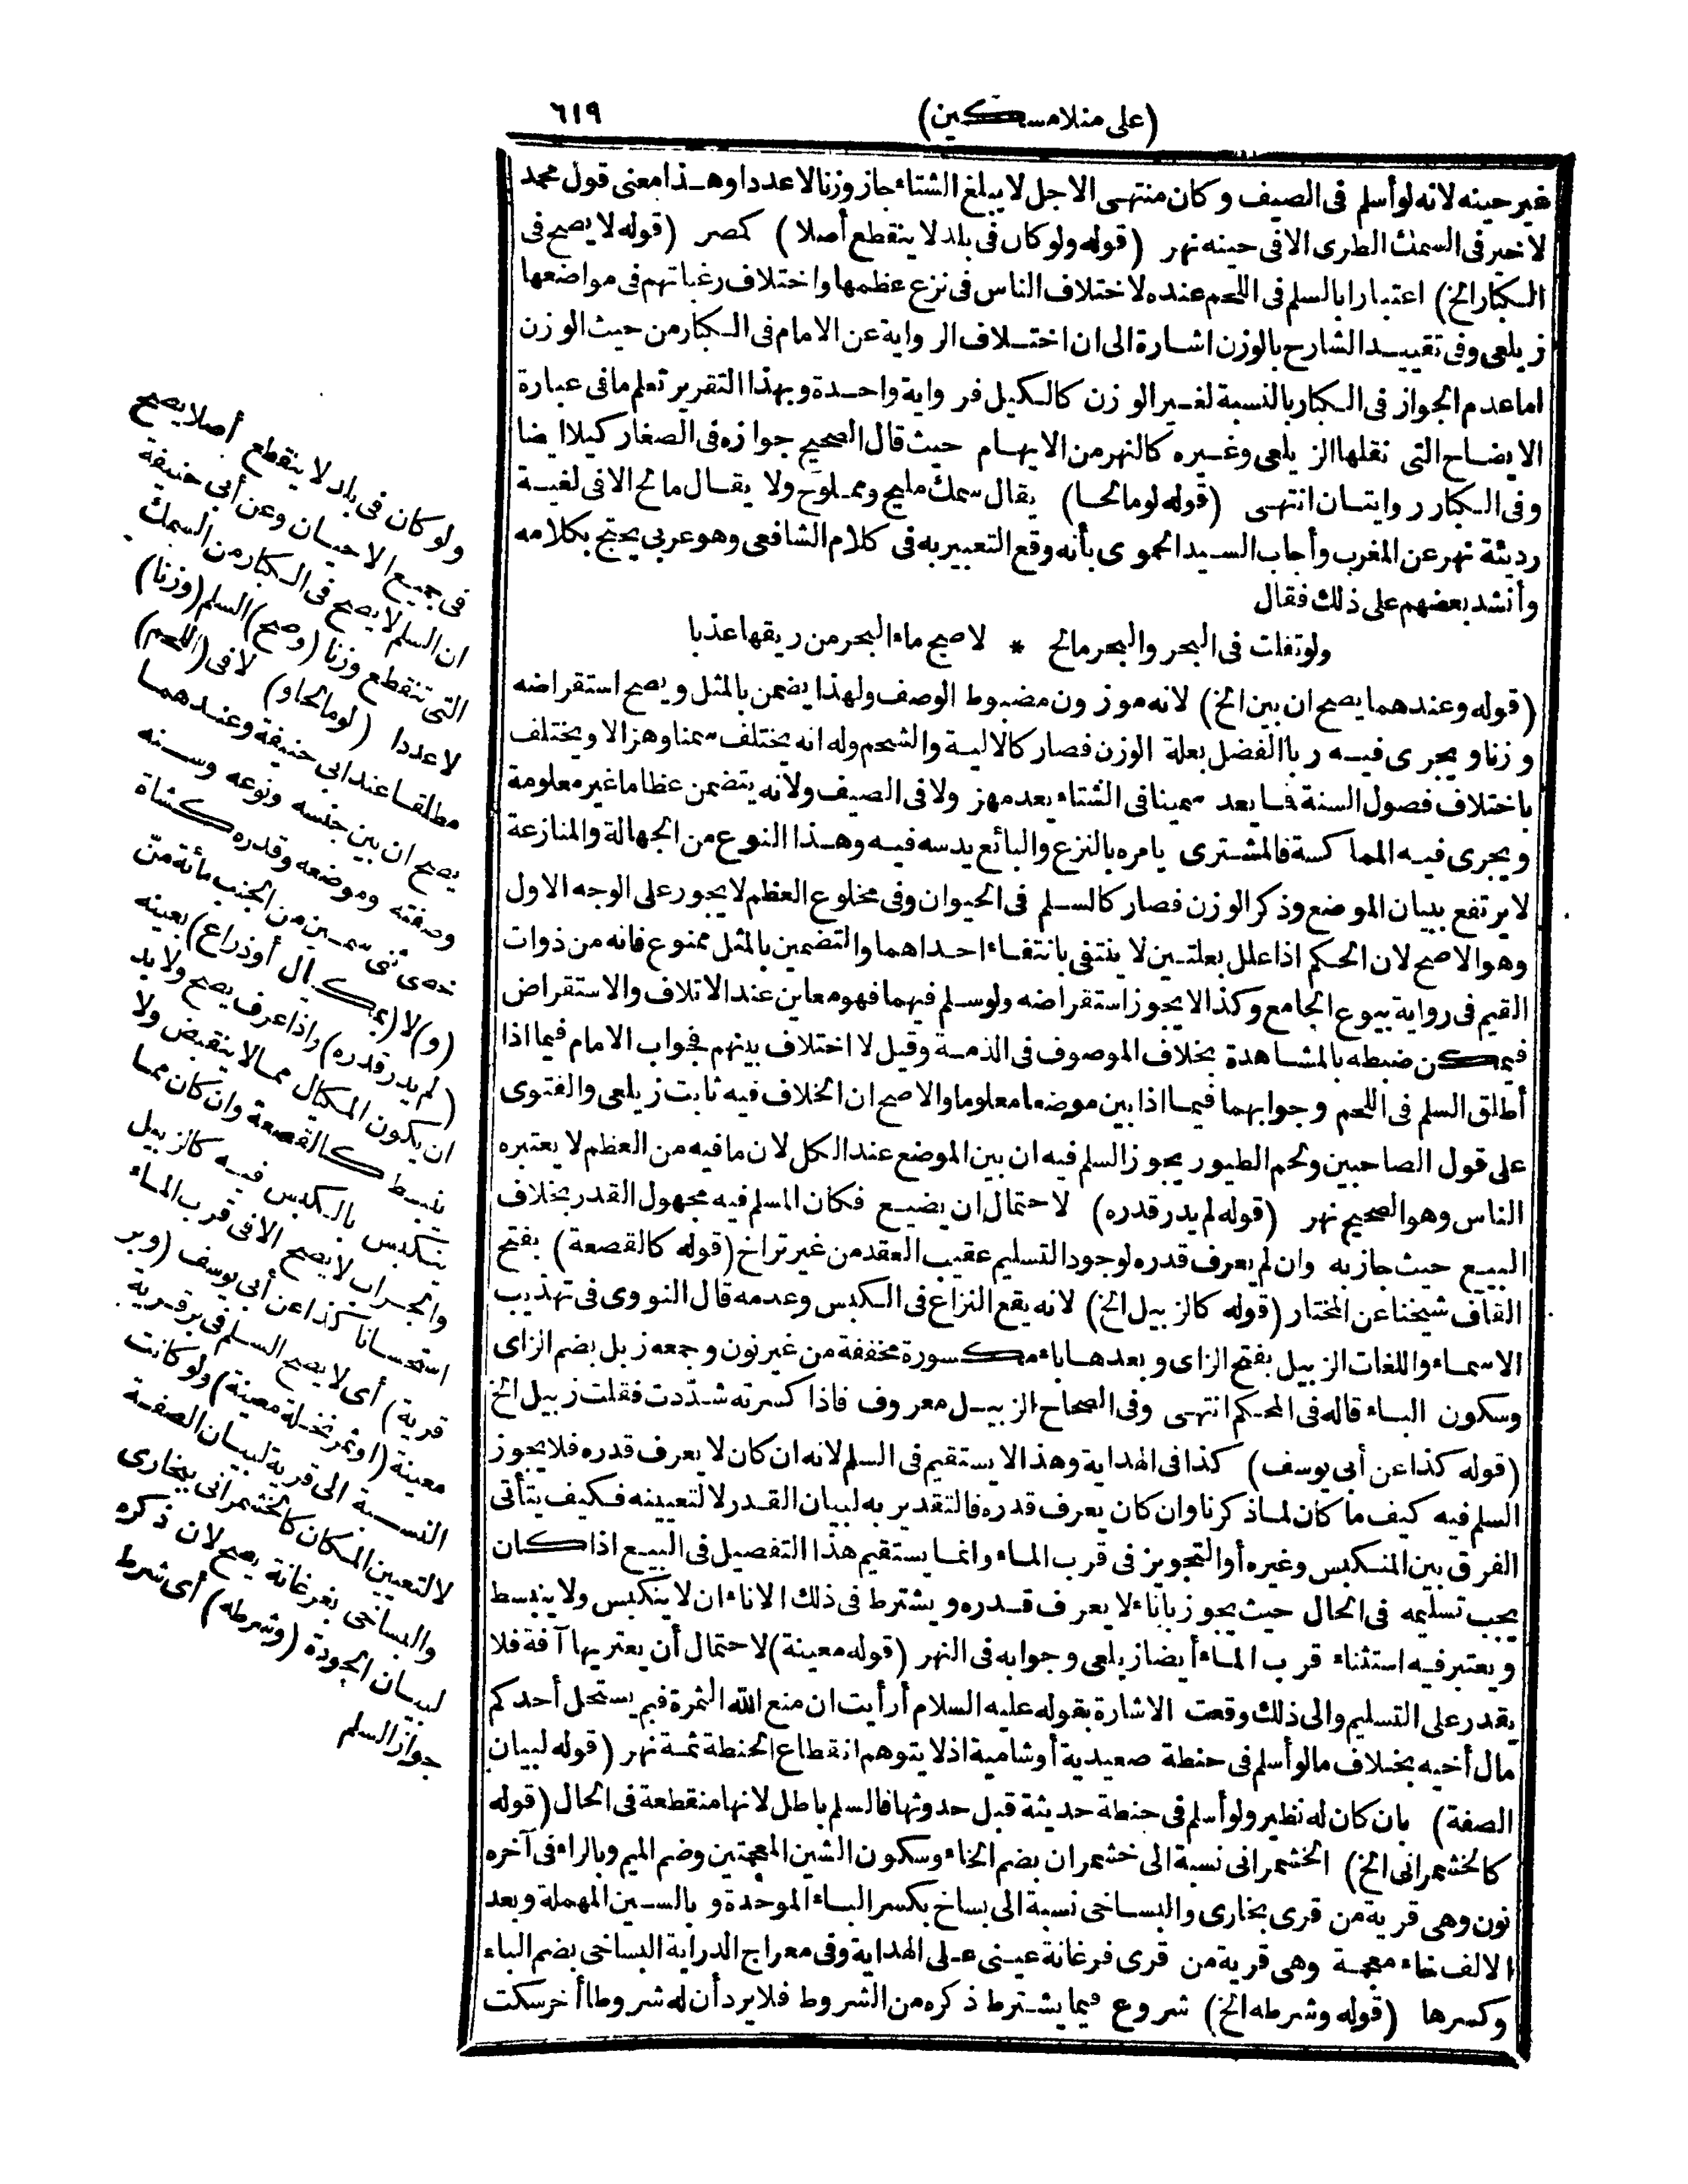 (على منلا مسكين)
٦١٩
غير حينه لانه لو أسلم فى الصيف وكان منتهى الاجل لا يبلغ الشتاء جاز وزنا لا عددا وهذا معنى قول محمد
لا خير فى السمك الطرى الا فى حينه نهر (قوله ولو كان فى بلد لا ينقطع أصلا) كمصر (قوله لا يصح فى
الكبار الخ) اعتبارا بالسلم فى اللحم عنده لاختلاف الناس فى نزع عظمها واختلاف رغباتهم فى مواضعها
زيلعى وفى تقييد الشارح بالوزن اشارة الى ان اختلاف الرواية عن الامام فى الكبار من حيث الوزن
اما عدم الجواز فى الكبار بالنسبة لغير الوزن كالكيل فرواية واحدة وبهذا التقرير تعلم ما فى عبارة
الايضاح التى نقلها الزيلعى وغيره كالنهر من الايهام حيث قال الصحيح جوازه فى الصغار كيلا ايضا
وفى الكبار روايتان انتهى (قوله لو مالحا) يقال سمك مليح ومملوح ولا يقال مالح الا فى لغية
رديئة نهر عن المغرب وأجاب السيد الحموى بأنه وقع التعبير به فى كلام الشافعى وهو عربى يحتج بكلامه
وأنشد بعضهم على ذلك فقال
ولو تفلت فى البحر والبحر مالح * لاصبح ماء البحر من ريقها عذبا
(قوله وعندهما يصح ان بين الخ) لانه موزون مضبوط الوصف ولهذا يضمن بالمثل ويصح استقراضه
وزنا ويجرى فيه ربا الفضل بعلة الوزن فصار كالالية والشحم وله انه يختلف سمنا وهزالا ويختلف
باختلاف فصول السنة فما يعد سمينا فى الشتاء يعد مهزولا فى الصيف ولانه يتضمن عظاما غير معلومة
ويجرى فيه المماكسة فالمشترى يامره بالنزع والبائع يدسه فيه وهذا النوع من الجهالة والمنازعة
لا يرتفع ببيان الموضع وذكر الوزن فصار كالسلم فى الحيوان وفى مخلوع العظم لا يجوز على الوجه الاول
وهو الاصح لان الحكم اذا علل بعلتين لا ينتفى بانتفاء احداهما والتضمين بالمثل ممنوع فانه من ذوات
القيم فى رواية بيوع الجامع وكذا لا يجوز استقراضه ولو سلم فيهما فهو معاين عند الاتلاف والاستقراض
فيمكن ضبطه بالمشاهدة بخلاف الموصوف فى الذمة وقيل لا اختلاف بينهم فجواب الامام فيما اذا
أطلق السلم فى اللحم وجوابهما فيما اذا بين موضعا معلوما والاصح ان الخلاف فيه ثابت زيلعى والفتوى
على قول الصاحبين ولحم الطيور يجوز السلم فيه ان بين الموضع عند الكل لان ما فيه من العظم لا يعتبره
الناس وهو الصحيح نهر (قوله لم يدر قدره) لاحتمال ان يضيع فكان المسلم فيه مجهول القدر بخلاف
البيع حيث جاز به وان لم يعرف قدره لوجود التسليم عقيب العقد من غير تراخ (قوله كالقصعة) بفتح
القاف شيخنا عن المختار (قوله كالزبيل الخ) لانه يقع النزاع فى الكبس وعدمه قال النووى فى تهذيب
الاسماء واللغات الزبيل بفتح الزاى وبعدها باء مكسورة مخففة من غير نون وجمعه زبل بضم الزاى
وسكون الباء قاله فى المحكم انتهى وفى الصحاح الزبيل معروف فاذا كسرته شدّدت فقلت زبيل الخ
(قوله كذا عن أبى يوسف) كذا فى الهداية وهذا لا يستقيم فى السلم لانه ان كان لا يعرف قدره فلا يجوز
السلم فيه كيف ما كان لما ذكرنا وان كان يعرف قدره فالتقدير به لبيان القدر لا لتعيينه فكيف يتأتى
الفرق بين المنكبس وغيره أو التجويز فى قرب الماء وانما يستقيم هذا التفصيل فى البيع اذا كان
يجب تسليمه فى الحال حيث يجوز باناء لا يعرف قدره ويشترط فى ذلك الاناء ان لا ينكبس ولا ينبسط
ويعتبر فيه استثناء قرب الماء أيضا زيلعى وجوابه فى النهر (قوله معينة) لاحتمال أن يعتريها آفة فلا
يقدر على التسليم والى ذلك وقعت الاشارة بقوله عليه السلام أرأيت ان منع الله الثمرة فبم يستحل أحدكم
مال أخيه بخلاف ما لو أسلم فى حنطة صعيدية أو شامية اذ لا يتوهم انقطاع الحنطة ثمة نهر (قوله لبيان
الصفة) بان كان له نظير ولو أسلم فى حنطة حديثة قبل حدوثها فالسلم باطل لانها منقطعة فى الحال (قوله
كالخشمرانى الخ) الخشمرانى نسبة الى خشمران بضم الخاء وسكون الشين المعجمتين وضم الميم وبالراء فى آخره
نون وهى قرية من قرى بخارى والبساخى نسبة الى بساخ بكسر الباء الموحدة و بالسين المهملة وبعد
الالف خاء معجمة وهى قرية من قرى فرغانة عينى على الهداية وفى معراج الدراية البساخى بضم الباء
وكسرها (قوله وشرطه الخ) شروع فيما يشترط ذكره من الشروط فلا يرد أن له شروطا أخر سكت
ولو كان فى بلد لا ينقطع أصلا يصح
فى جميع الاحيان وعن أبى حنيفة
ان السلم لا يصح فى الكبار من السمك
التى تنقطع وزنا (وصح) السلم (وزنا)
لا عددا (لو مالحا و) لا فى (اللحم)
مطلقا عند ابى حنيفة وعندهما
يصح ان بين جنسه ونوعه وسنه
وصفته وموضعه وقدره كشاة
خصى ثنى سمين من الجنب مائة منّ
(و) لا (بمكيال أو ذراع) بعينه
(لم يدر قدره) واذا عرف يصح ولا بد
ان يكون المكيال مما لا ينقبض ولا
ينبسط كالقصعة وان كان مما
ينكبس بالكبس فيه كالزبيل
والجراب لا يصح الا فى قرب الماء
استحسانا كذا عن أبى يوسف (وبر
قرية) أى لا يصح السلم فى بر قرية
معينة (او ثمر نخلة معينة) ولو كانت
النسبة الى قرية لبيان الصفة
لا لتعيين المكان كالخشمرانى ببخارى
والبساخى بفرغانة يصح لان ذكره
لبيان الجودة (وشرطه) أى شرط
جواز السلم